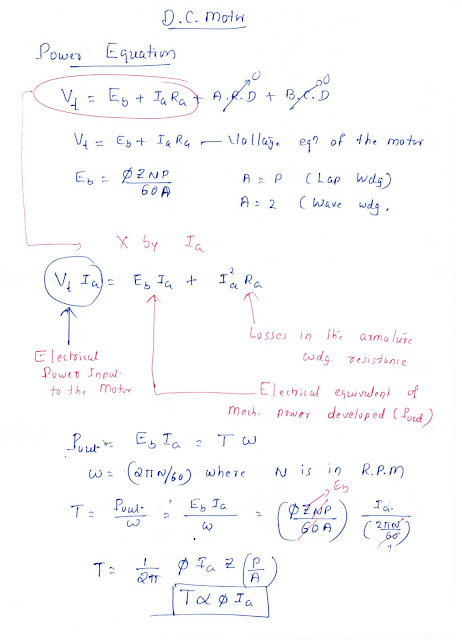 D.C. Motor
Power Equation
V_t = E_b + I_a R_a + A.R.D → 0 + B.C.D → 0
V_t = E_b + I_a R_a — Voltage eqⁿ of the motor
E_b = ØZNP / 60A    A = P ( Lap Wdg)
A = 2 ( Wave wdg.
X by I_a
V_t I_a = E_b I_a + I_a² R_a
Losses in the armature
wdg. resistance
Electrical
Power Input
to the Motor
Electrical equivalent of
mech. power developed (Pout)
Pout = E_b I_a = T ω
ω = (2πN/60) where N is in R.P.M
E_b
T = Pout / ω = E_b I_a / ω = (ØZNP / 60A) I_a. / (2πN / 60)
T = 1/2π Ø I_a Z (P/A)
T ∝ Ø I_a